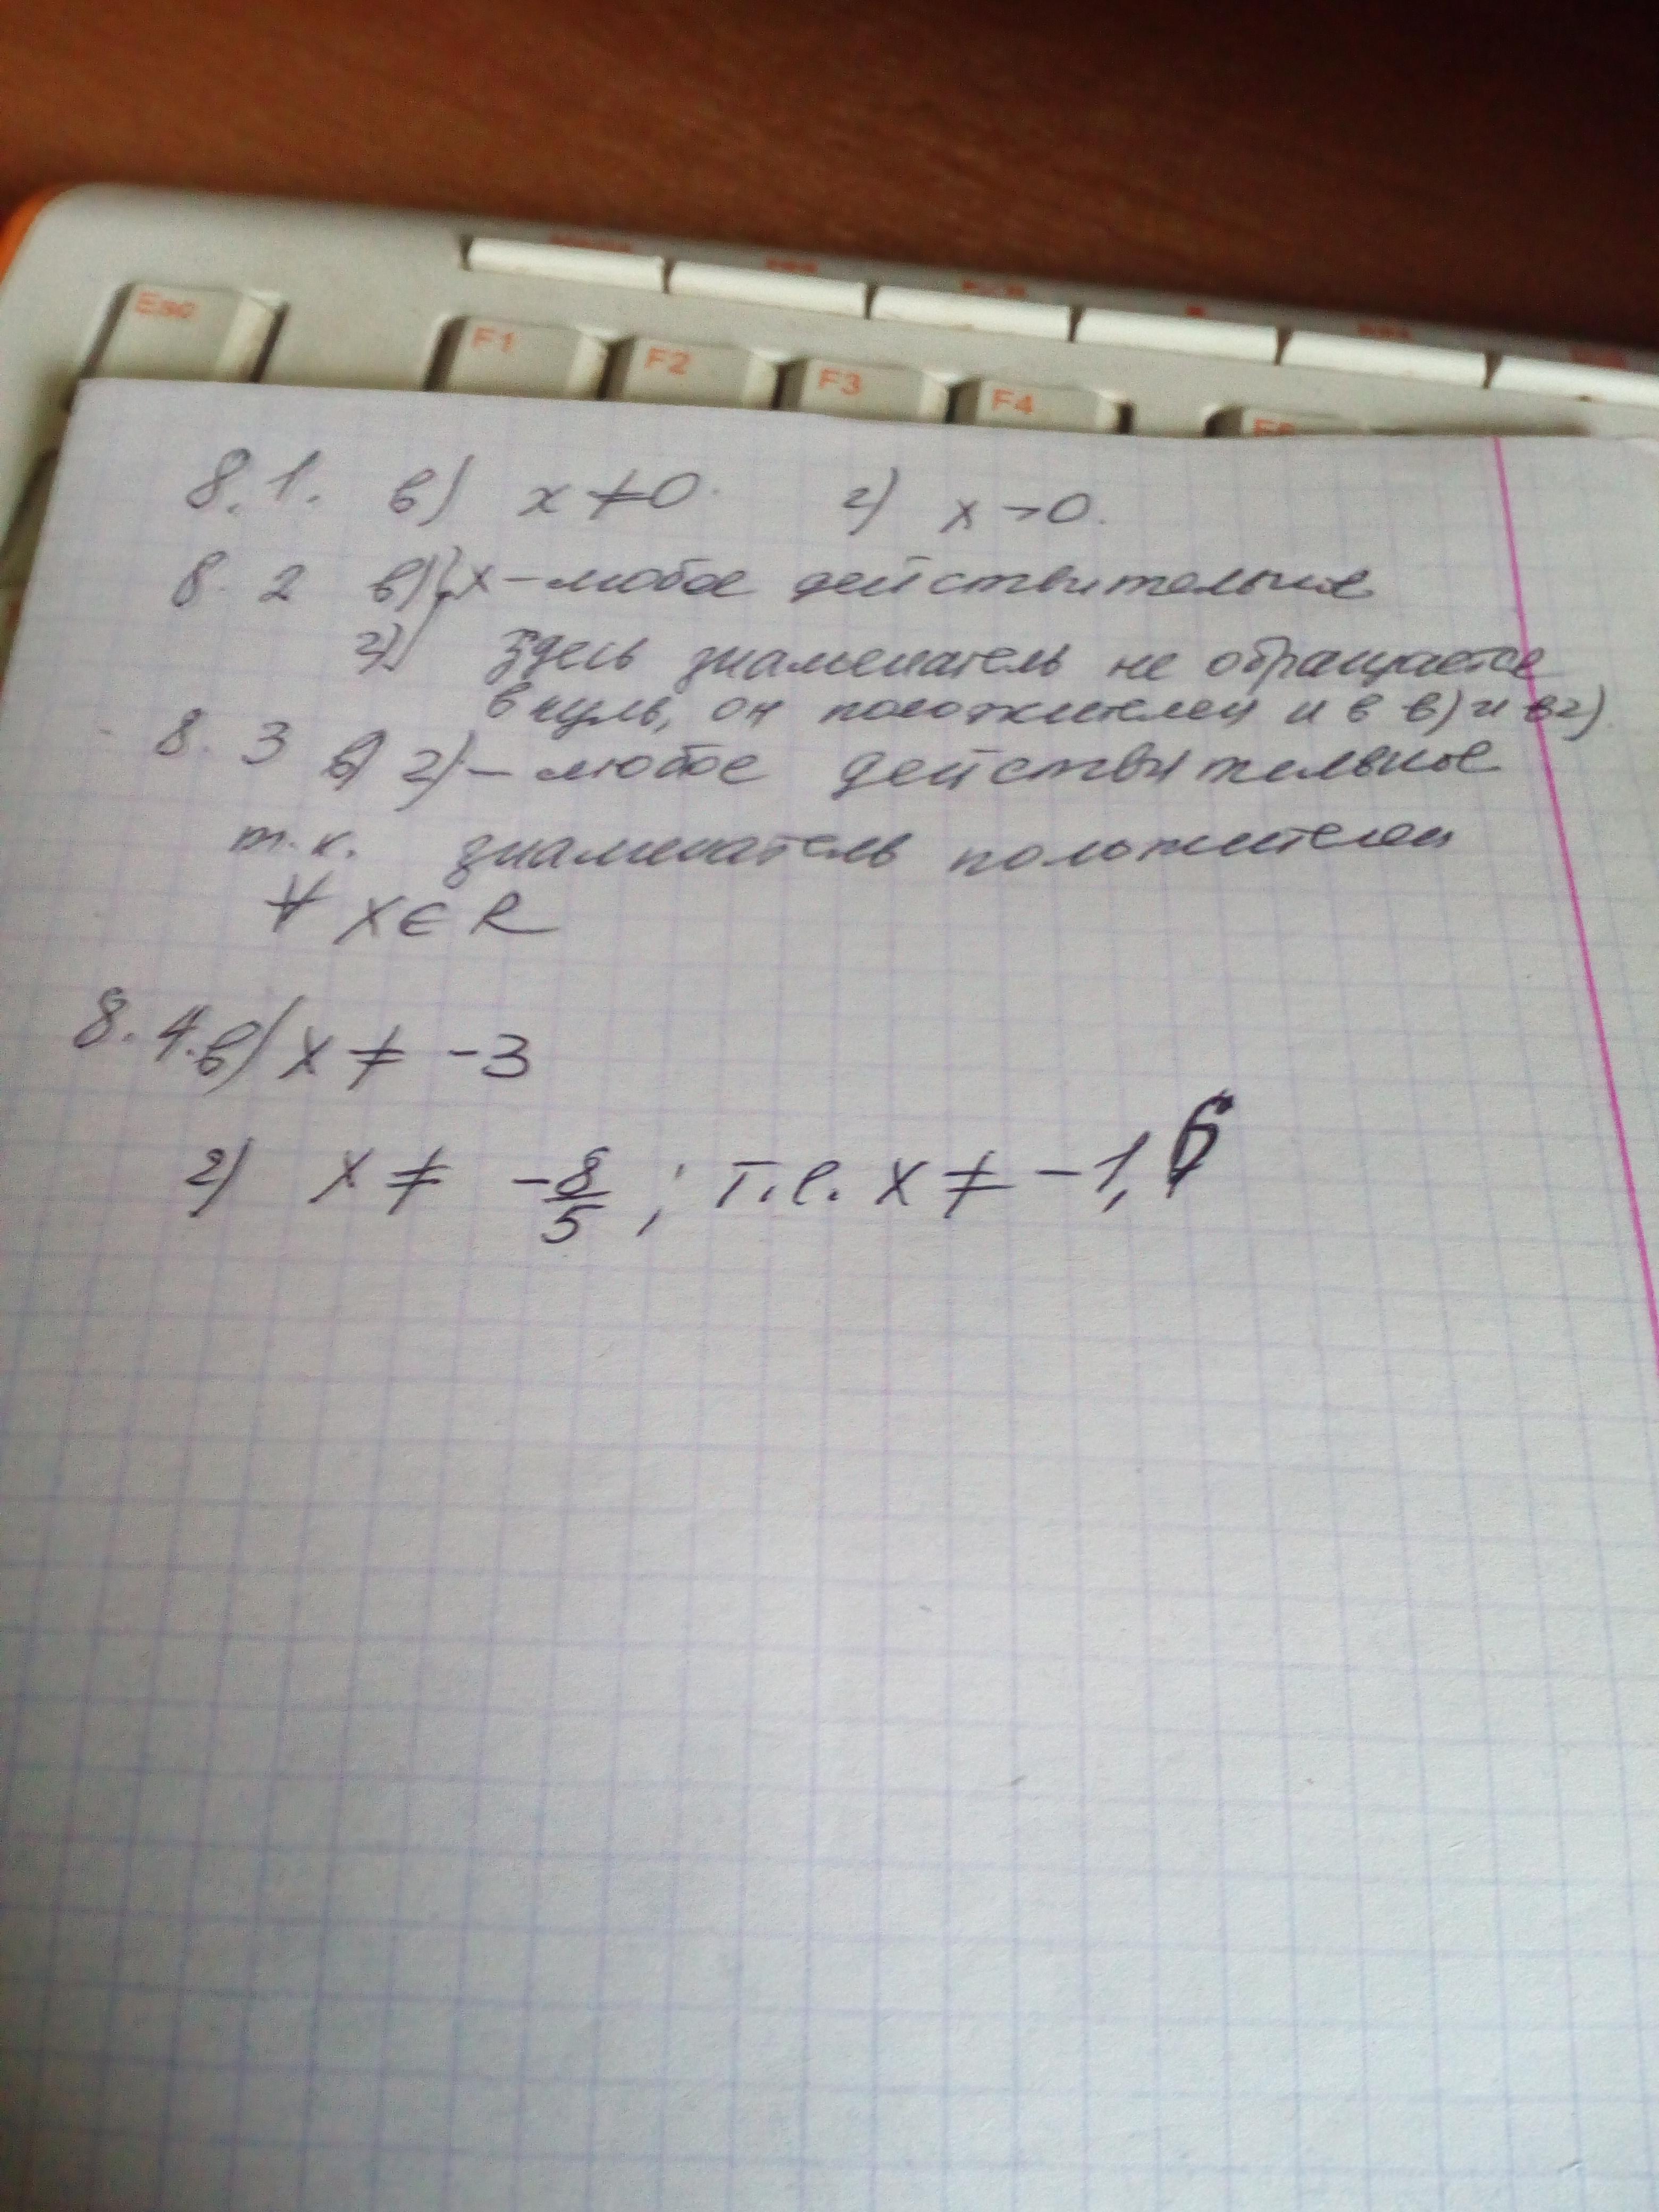 Esc
F1 F2 F3 F4
8.1. в) x ≠ 0. г) x > 0.
8.2 в) x – любое действительное
г) Здесь знаменатель не обращается
в нуль, он положителен и в в) и в г)
8.3 в) г) – любое действительное
т.к. знаменатель положителен
∀ x ∈ R
8.4. в) x ≠ -3
г) x ≠ -8/5 ; т.е. x ≠ -1,6